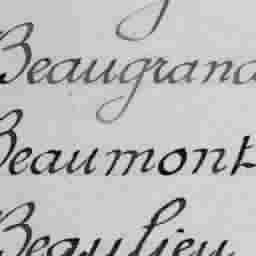 Beaugrand
Beaumont
Beaulieu